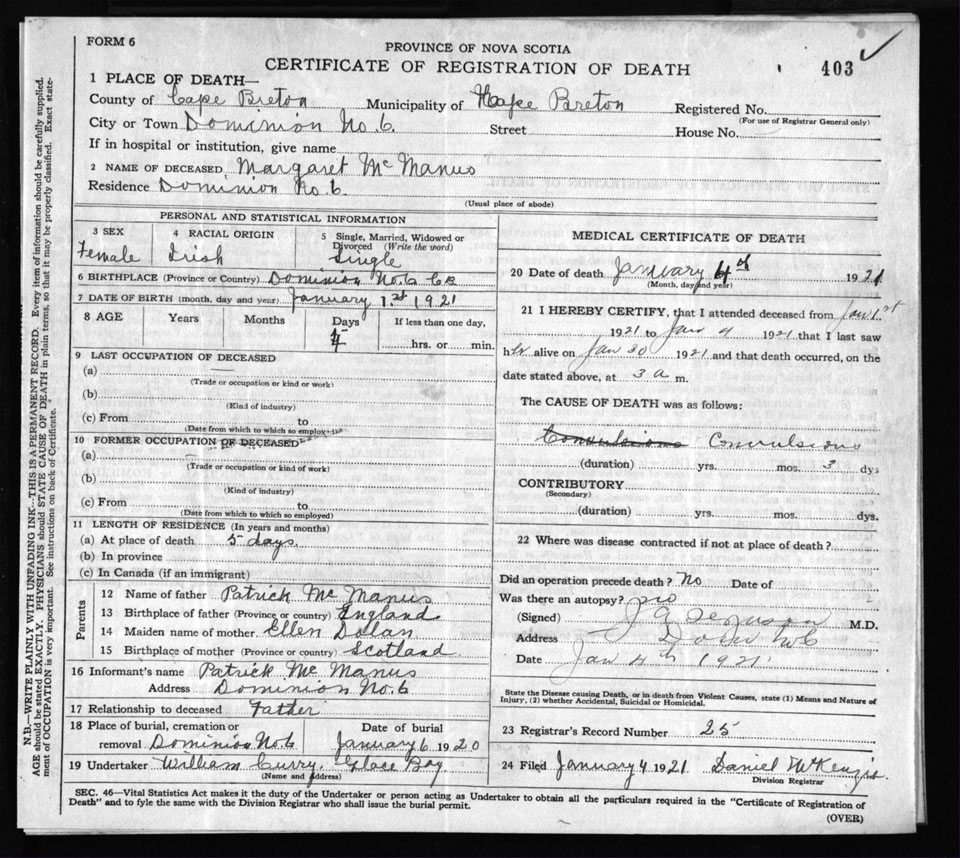 FORM 6
PROVINCE OF NOVA SCOTIA
CERTIFICATE OF REGISTRATION OF DEATH
403
1 PLACE OF DEATH—
County of Cape Breton Municipality of Cape Breton Registered No.
(For use of Registrar General only)
City or Town Dominion No. 6. Street House No.
If in hospital or institution, give name
2 NAME OF DECEASED Margaret Mc Manus
Residence Dominion No. 6.
(Usual place of abode)
PERSONAL AND STATISTICAL INFORMATION
3 SEX Female
4 RACIAL ORIGIN Irish
5 Single, Married, Widowed or Divorced (Write the word) Single
6 BIRTHPLACE (Province or Country) Dominion No. 6 CB
7 DATE OF BIRTH (month, day and year) January 1st 1921
8 AGE Years Months Days If less than one day,
hrs. or min.
9 LAST OCCUPATION OF DECEASED
(a) —
(Trade or occupation or kind or work)
(b)
(Kind of industry)
(c) From to
(Date from which to which so employed)
10 FORMER OCCUPATION OF DECEASED
(a) —
(Trade or occupation or kind of work)
(b)
(Kind of industry)
(c) From to
(Date from which to which so employed)
11 LENGTH OF RESIDENCE (In years and months)
(a) At place of death 5 days.
(b) In province
(c) In Canada (if an immigrant)
Parents
12 Name of father Patrick Mc Manus
13 Birthplace of father (Province or country) England
14 Maiden name of mother Ellen Dolan
15 Birthplace of mother (Province or country) Scotland
16 Informant's name Patrick Mc Manus
Address Dominion No. 6
17 Relationship to deceased Father
18 Place of burial, cremation or removal Dominion No 6 Date of burial January 6 1920
19 Undertaker William Curry, Glace Bay
(Name and address)
MEDICAL CERTIFICATE OF DEATH
20 Date of death January 4th 1921
(Month, day and year)
21 I HEREBY CERTIFY, that I attended deceased from Jan 1st
1921 to Jan 4 1921 that I last saw
her alive on Jan 30 1921 and that death occurred, on the
date stated above, at 3 a m.
The CAUSE OF DEATH was as follows:
Convulsions Convulsions
(duration) yrs. mos. 3 dys
CONTRIBUTORY
(Secondary)
(duration) yrs. mos. dys.
22 Where was disease contracted if not at place of death?
Did an operation precede death? No Date of
Was there an autopsy? no
(Signed) M.D.
Address
Date Jan 4th 1921
State the Disease causing Death, or in death from Violent Causes, state (1) Means and Nature of
Injury, (2) whether Accidental, Suicidal or Homicidal.
23 Registrar's Record Number 25
24 Filed January 4 1921 Daniel McKenzie
Division Registrar
SEC. 46—Vital Statistics Act makes it the duty of the Undertaker or person acting as Undertaker to obtain all the particulars required in the "Certificate of Registration of
Death" and to fyle the same with the Division Registrar who shall issue the burial permit.
(OVER)
N.B.—WRITE PLAINLY WITH UNFADING INK—THIS IS A PERMANENT RECORD. Every item of information should be carefully supplied.
AGE should be stated EXACTLY. PHYSICIANS should STATE CAUSE OF DEATH in plain terms, so that it may be properly classified. Exact state-
ment of OCCUPATION is very important. See instructions on back of Certificate.